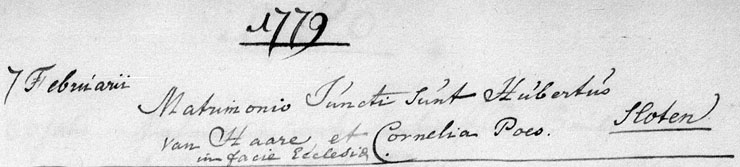 1779
7 Februarii
Matrimonio Juncti Sunt Hubertus
van Haare et Cornelia Poes. Sloten
in facie Ecclesiæ